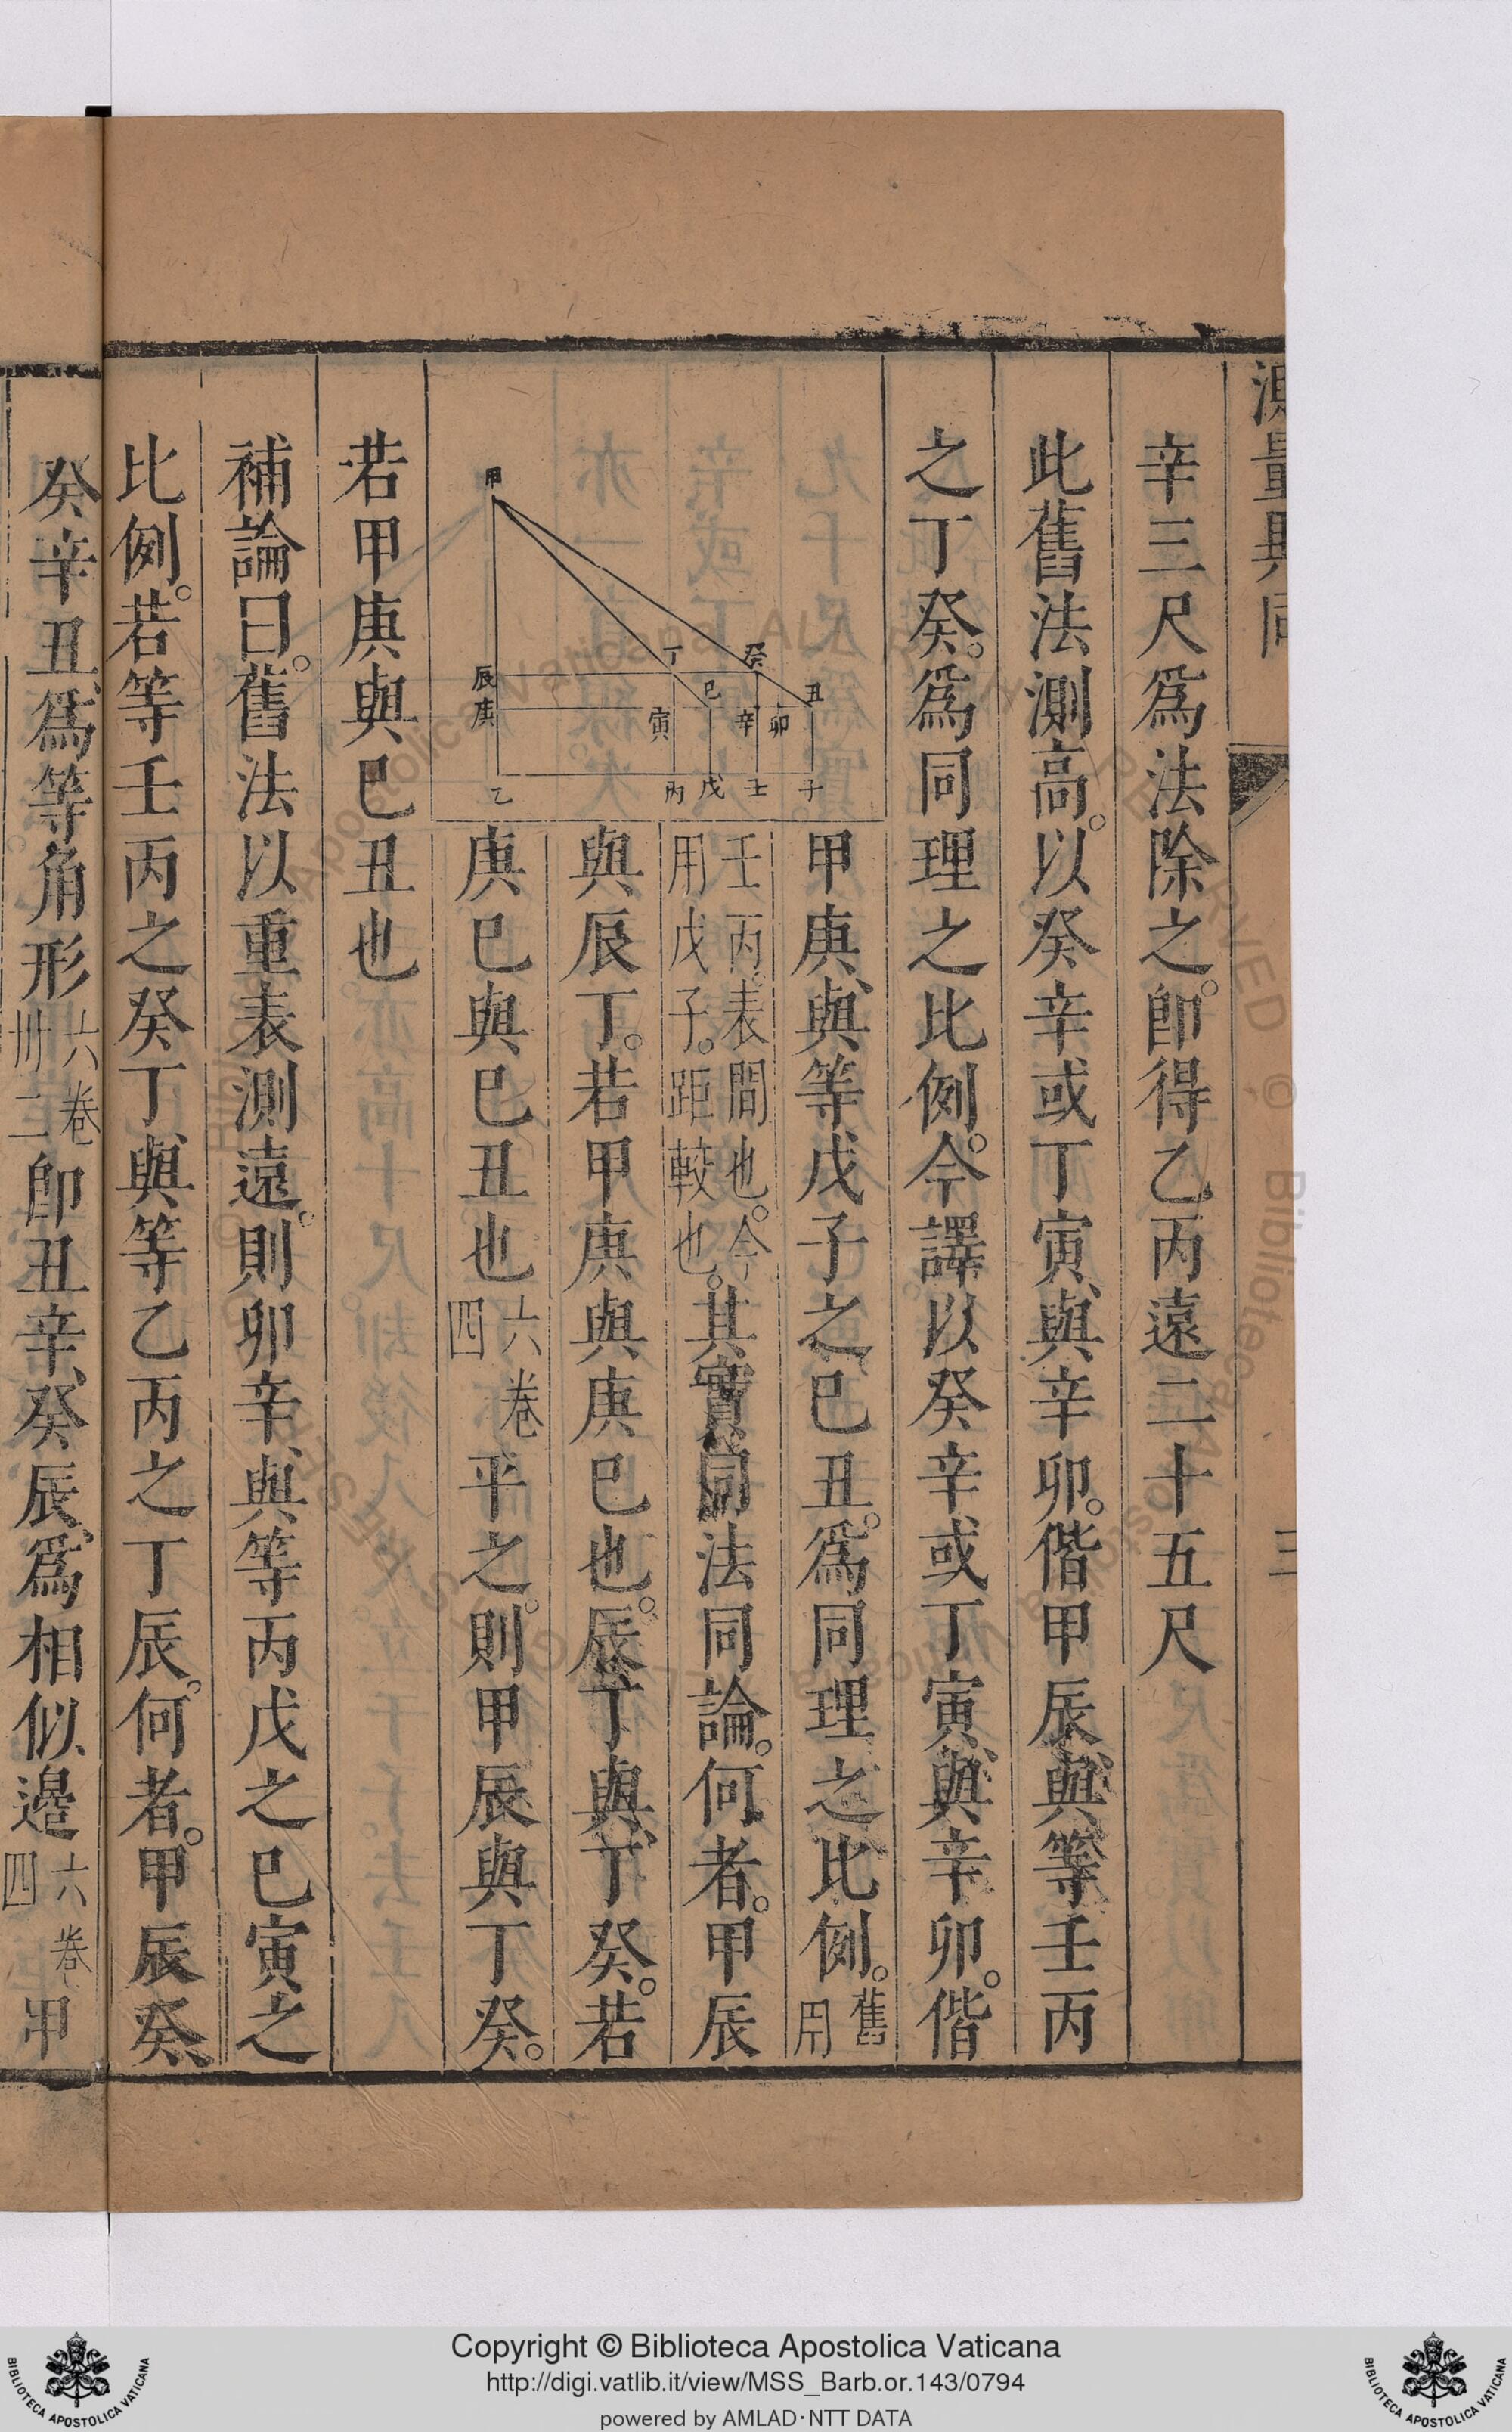 測量異同
三
辛三尺爲法除之。卽得乙丙遠二十五尺
此舊法測高。以癸辛或丁寅、與辛卯。偕甲辰、與等壬丙
之丁癸。爲同理之比例。今譯以癸辛或丁寅、與辛卯。偕
甲庚、與等戊子之巳丑。爲同理之比例。舊用
壬丙。表間也。今用戊子。距較也。其實同法同論。何者。甲辰
與辰丁。若甲庚與庚巳也。辰丁與丁癸。若
庚巳與巳丑也六卷四平之。則甲辰與丁癸。
若甲庚與巳丑也
甲
丁
癸
辰
巳
丑
庚
寅
辛
卯
乙
丙
戊
壬
子
補論曰。舊法以重表測遠。則卯辛、與等丙戊之巳寅之
比例。若等壬丙之癸丁、與等乙丙之丁辰。何者。甲辰癸、
癸辛丑、爲等角形六卷卅二卽丑辛、癸辰、爲相似邊六卷四甲
Copyright © Biblioteca Apostolica Vaticana
http://digi.vatlib.it/view/MSS_Barb.or.143/0794
powered by AMLAD·NTT DATA
BIBLIOTECA APOSTOLICA VATICANA
BIBLIOTECA APOSTOLICA VATICANA